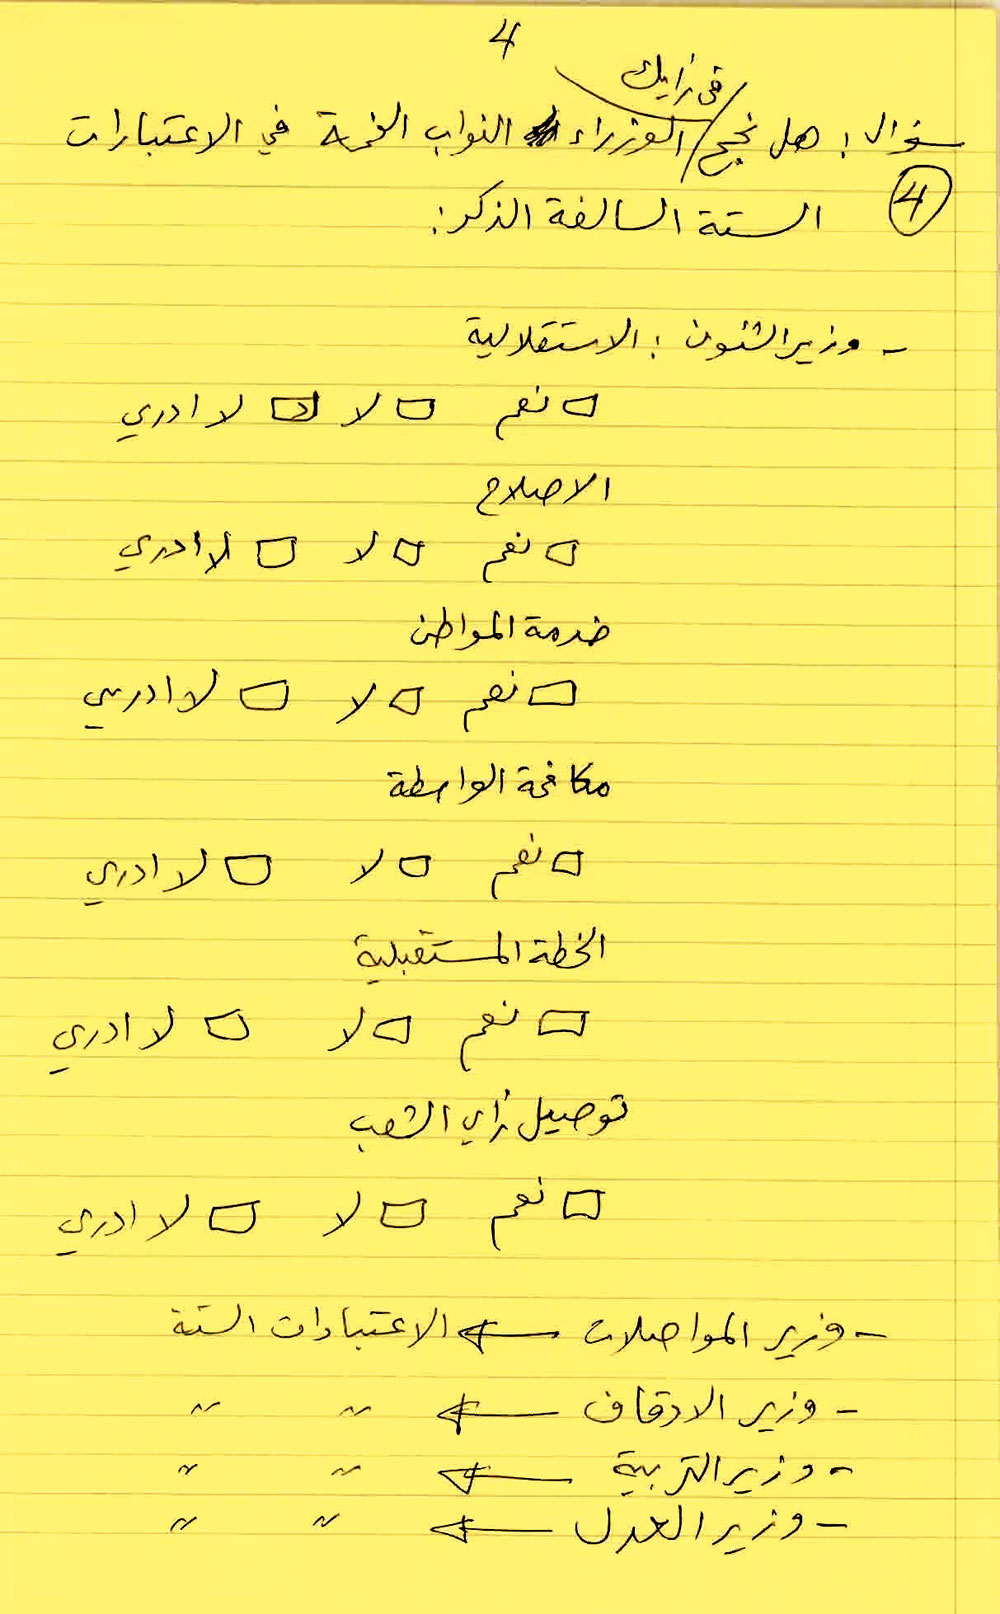 4
في رأيك
سؤال: هل نجح الوزراء النواب الخمسة في الاعتبارات
4
الستة السالفة الذكر:
- وزير الشئون: الاستقلالية
نعم لا لا ادري
الاصلاح
نعم لا لا ادري
خدمة المواطن
نعم لا لا ادري
مكافحة الواسطة
نعم لا لا ادري
الخطة المستقبلية
نعم لا لا ادري
توصيل رأي الشعب
نعم لا لا ادري
- وزير المواصلات ← الاعتبارات الستة
- وزير الاوقاف ← " "
- وزير التربية ← " "
- وزير العدل ← " "